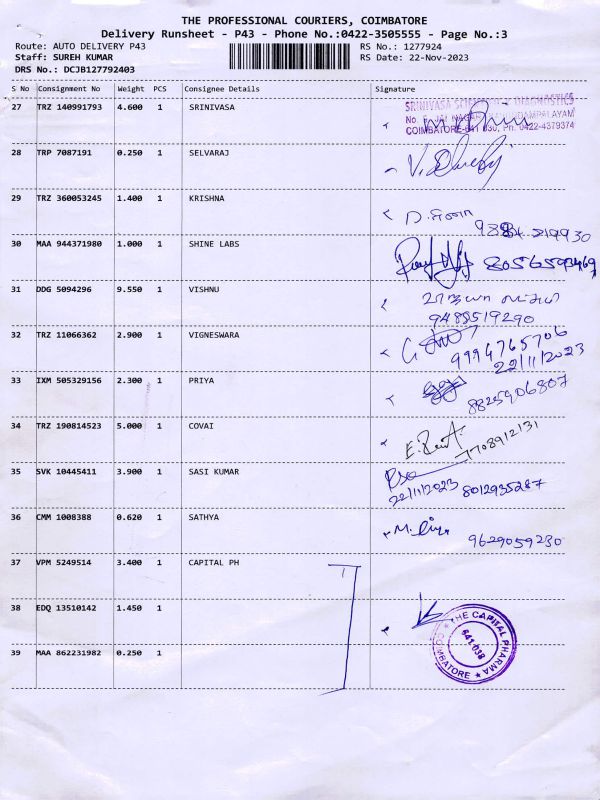 THE PROFESSIONAL COURIERS, COIMBATORE
Delivery Runsheet - P43 - Phone No.:0422-3505555 - Page No.:3
Route: AUTO DELIVERY P43 RS No.: 1277924
Staff: SUREH KUMAR RS Date: 22-Nov-2023
DRS No.: DCJB127792403
S No Consignment No Weight PCS Consignee Details Signature
27 TRZ 140991793 4.600 1 SRINIVASA
SRINIVASA DIAGNOSTICS
COIMBATORE-641 038, Ph: 0422-4379374
28 TRP 7087191 0.250 1 SELVARAJ
29 TRZ 360053245 1.400 1 KRISHNA
30 MAA 944371980 1.000 1 SHINE LABS
8056593469
31 DDG 5094296 9.550 1 VISHNU
9488519290
32 TRZ 11066362 2.900 1 VIGNESWARA
9994765706
22/11/2023
33 IXM 505329156 2.300 1 PRIYA
8825906807
34 TRZ 190814523 5.000 1 COVAI
7708912131
35 SVK 10445411 3.900 1 SASI KUMAR
22/11/2023 8012935287
36 CMM 1008388 0.620 1 SATHYA
9629059230
37 VPM 5249514 3.400 1 CAPITAL PH
38 EDQ 13510142 1.450 1
THE CAPITAL PHARMA
641 038
COIMBATORE
39 MAA 862231982 0.250 1